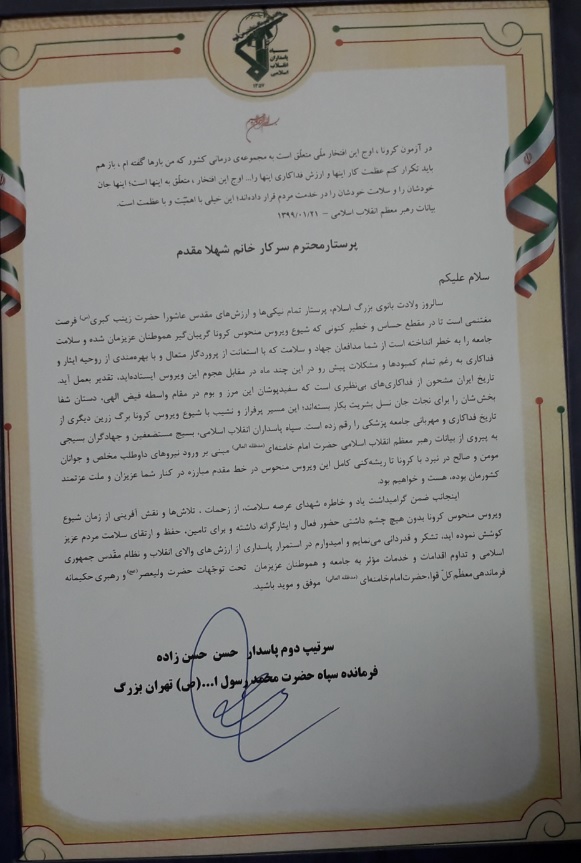 سپاه
پاسداران
انقلاب
اسلامی
۱۳۵۷
در آزمون کرونا، اوج این افتخار ملّی متعلّق است به مجموعه‌ی درمانی کشور که من بارها گفته ام ، باز هم
باید تکرار کنم عظمت کار اینها و ارزش فداکاری اینها را... اوج این افتخار ، متعلّق به اینها است؛ اینها جان
خودشان را و سلامت خودشان را در خدمت مردم قرار داده‌اند؛ این خیلی با اهمّیّت و با عظمت است.
بیانات رهبر معظم انقلاب اسلامی – ۱۳۹۹/۰۱/۲۱
پرستارمحترم سرکار خانم شهلا مقدم
سلام علیکم
سالروز ولادت بانوی بزرگ اسلام، پرستار تمام نیکی‌ها و ارزش‌های مقدس عاشورا حضرت زینب کبری(س) فرصت
مغتنمی است تا در مقطع حساس و خطیر کنونی که شیوع ویروس منحوس کرونا گریبان‌گیر هموطنان عزیزمان شده و سلامت
جامعه را به خطر انداخته است از شما مدافعان جهاد و سلامت که با استعانت از پروردگار متعال و با بهره‌مندی از روحیه ایثار و
فداکاری به رغم تمام کمبودها و مشکلات پیش رو در این چند ماه در مقابل هجوم این ویروس ایستاده‌اید، تقدیر بعمل آید.
تاریخ ایران مشحون از فداکاری‌های بی‌نظیری است که سفیدپوشان این مرز و بوم در مقام واسطه فیض الهی، دستان شفا
بخش‌شان را برای نجات جان نسل بشریت بکار بسته‌اند؛ این مسیر پرفراز و نشیب با شیوع ویروس کرونا برگ زرین دیگری از
تاریخ فداکاری و مهربانی جامعه پزشکی را رقم زده است. سپاه پاسداران انقلاب اسلامی، بسیج مستضعفین و جهادگران بسیجی
به پیروی از بیانات رهبر معظم انقلاب اسلامی حضرت امام خامنه‌ای (مدظله العالی) مبنی بر ورود نیروهای داوطلب مخلص و جوانان
مومن و صالح در نبرد با کرونا تا ریشه‌کنی کامل این ویروس منحوس در خط مقدم مبارزه در کنار شما عزیزان و ملت عزتمند
کشورمان بوده، هست و خواهیم بود.
اینجانب ضمن گرامیداشت یاد و خاطره شهدای عرصه سلامت، از زحمات ، تلاش‌ها و نقش آفرینی از زمان شیوع
ویروس منحوس کرونا بدون هیچ چشم داشتی حضور فعال و ایثارگرانه داشته و برای تامین، حفظ و ارتقای سلامت مردم عزیز
کوشش نموده اید، تشکر و قدردانی می‌نمایم و امیدوارم در استمرار پاسداری از ارزش‌های والای انقلاب و نظام مقدّس جمهوری
اسلامی و تداوم اقدامات و خدمات مؤثر به جامعه و هموطنان عزیزمان تحت توجّهات حضرت ولیعصر(عج) و رهبری حکیمانه
فرماندهی معظّم کلّ قوا، حضرت امام خامنه‌ای (مدظله العالی) موفق و موید باشید.
سرتیپ دوم پاسدار حسن حسن زاده
فرمانده سپاه حضرت محمد رسول ا...(ص) تهران بزرگ